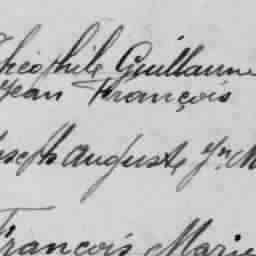 Théophile Guillaume
Jean François
Joseph Auguste Jn. M
François Marie